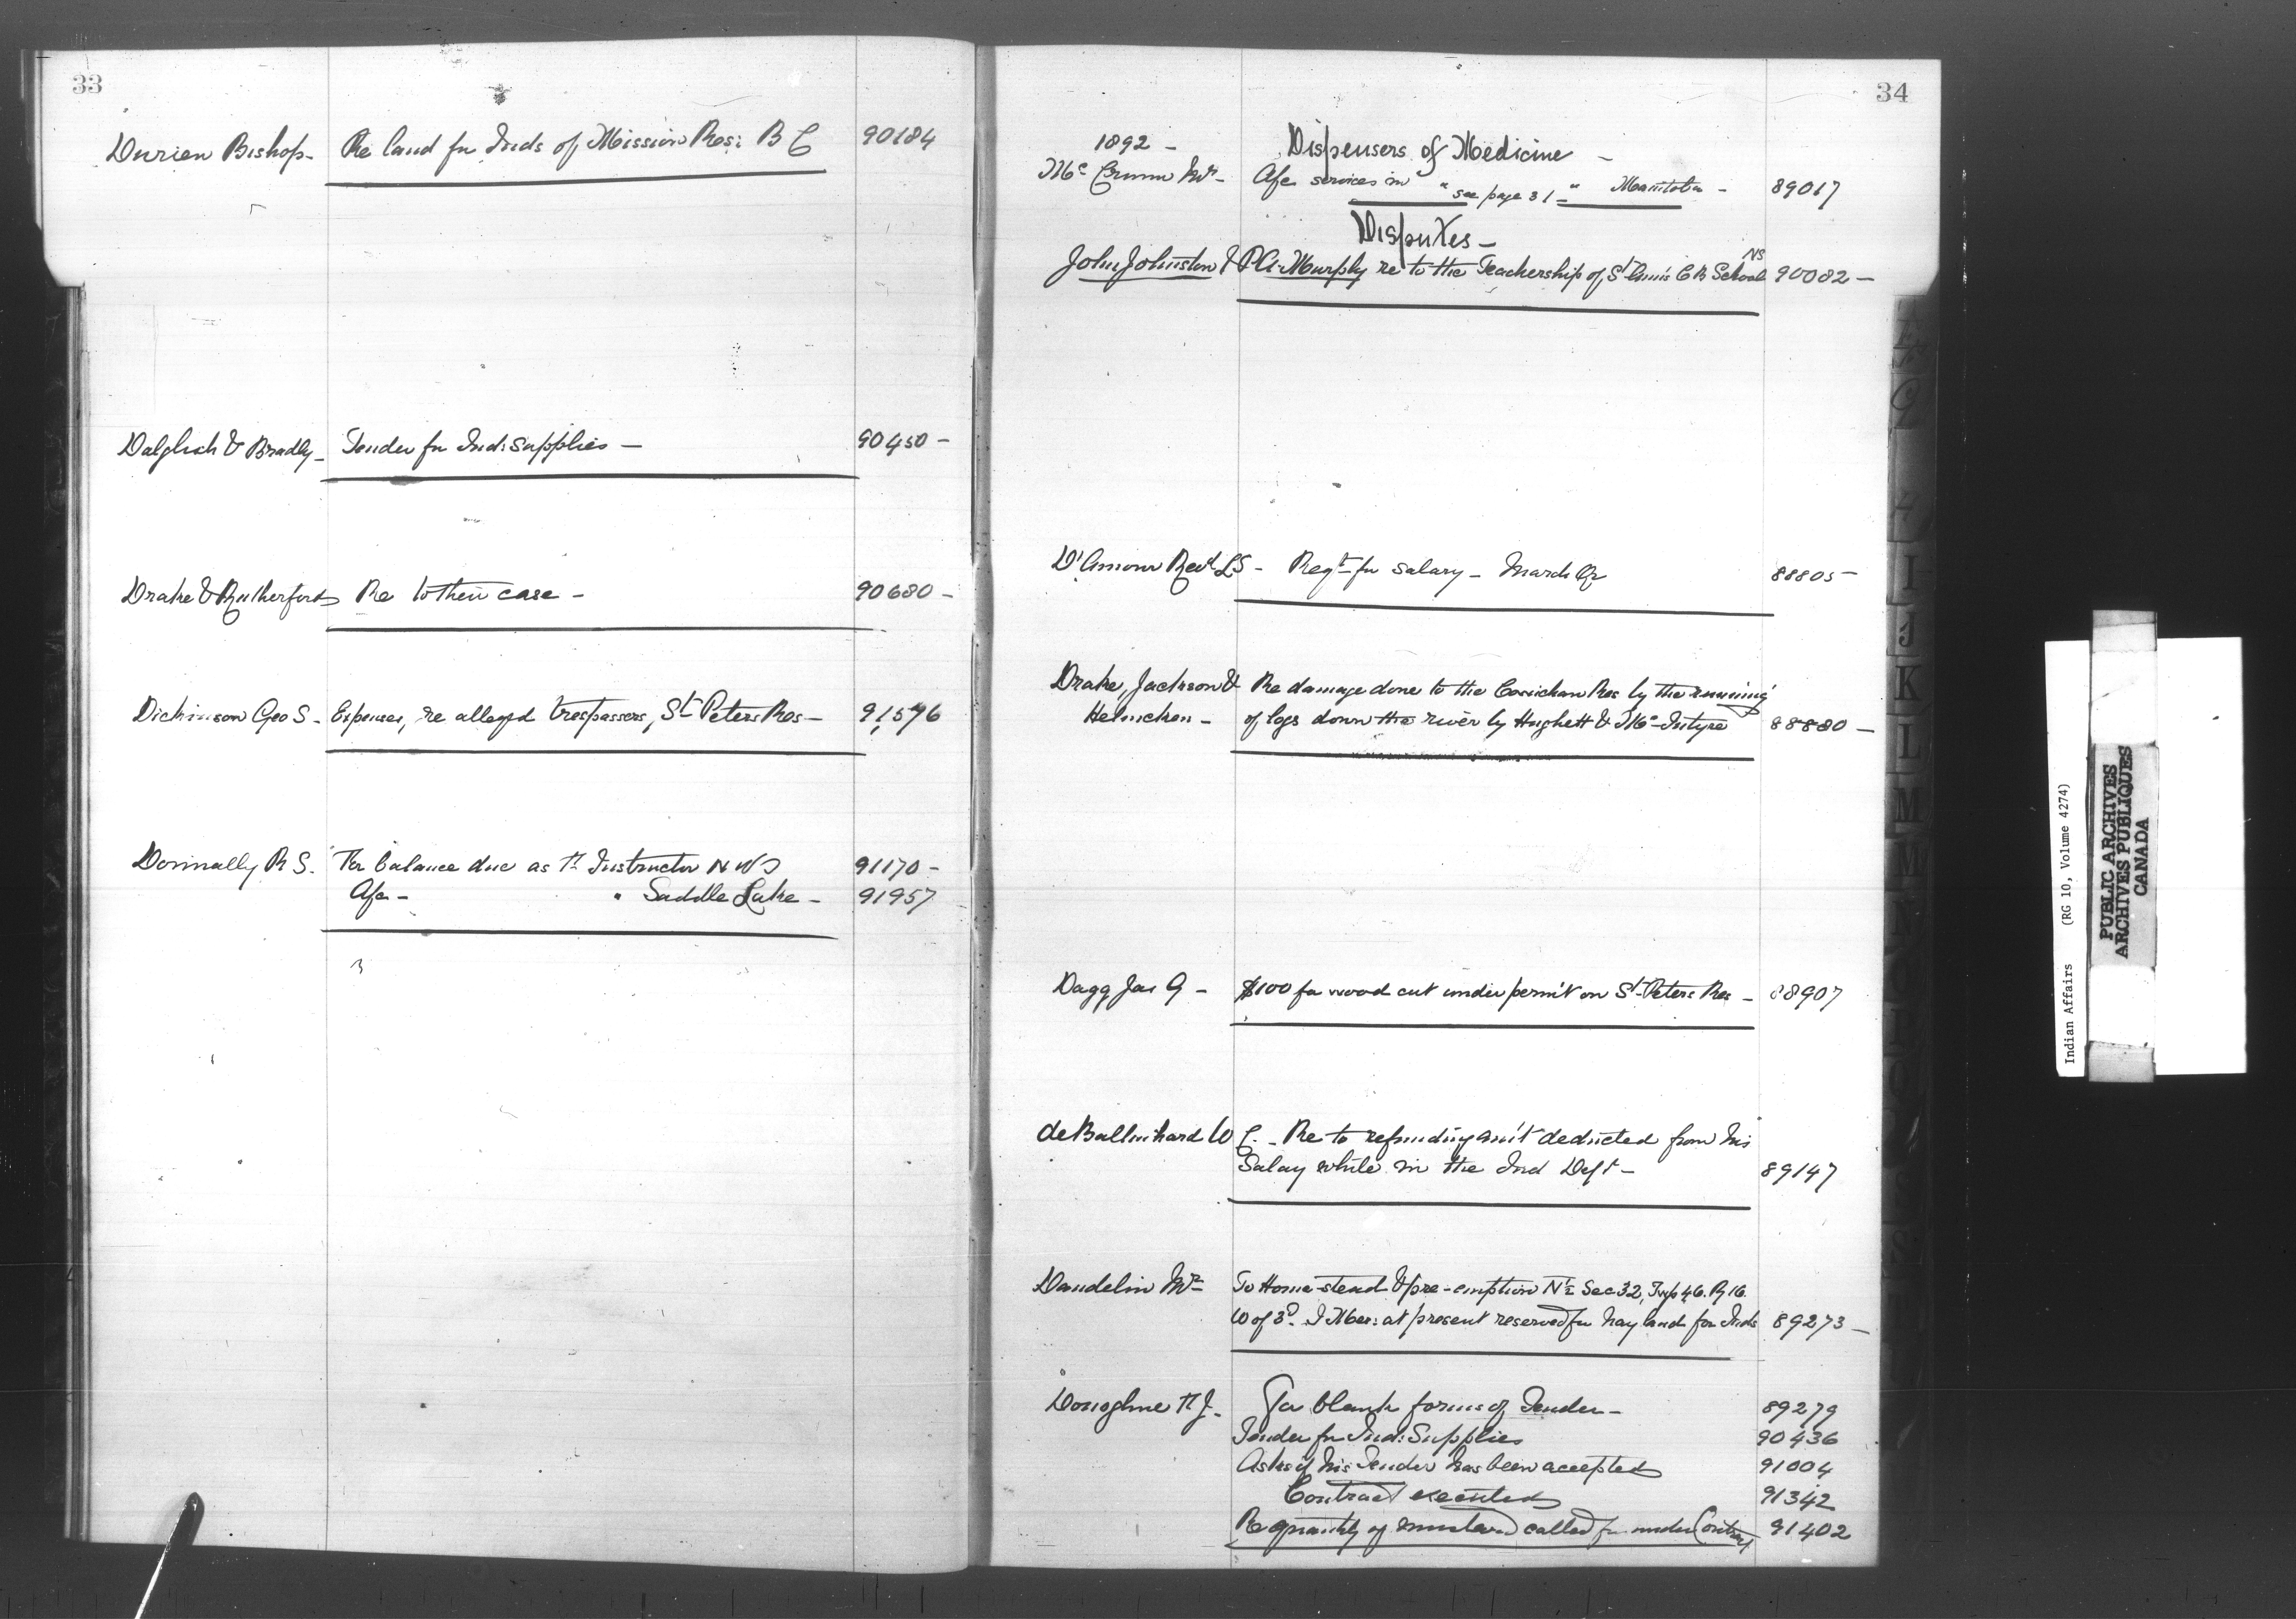 33
Durieu Bishop - Re land for Inds of Mission Res: B C 90184
Dalglish & Bradly - Tender for Ind: supplies - 90450 -
Drake & Rutherford Re to their case - 90680 -
Dickinson Geo S - Expenses, re alleged trespassers, St Peters Res - 91576
Donnally R S. For balance due as Instructor N W T 91170 -
Afcn - " Saddle Lake - 91957
34
1892 - Dispensers of Medicine -
Mc Crimm Mr - Afcn services in " see page 31 - " Manitoba - 89017
Disputes -
NS
John Johnston & P A Murphy re to the Teachership of St Ann's C B School 90082 -
D'Amour Revd L S - Reqt for salary - March Qr 88805 -
Drake, Jackson & Re damage done to the Cowichan Res by the running
Helmcken - of logs down the river by Hughett & Mc Intyre 88880 -
Dagg Jas G - $100 for wood cut under permit on St Peters Res - 88907
de Ballinhard W C. - Re to refunding am't deducted from his
Salary while in the Ind Dept - 89147
Dandelin Mr To Home-stead & pre-emption N½ Sec 32, Twp 46. R 16.
W of 3d. I Mer: at present reserved for hay land for Inds 89273 -
Donoghue T J. For blank forms of Tender - 89279
Tender for Ind: Supplies 90436
Asks if his Tender has been accepted 91004
Contract executed 91342
Re quantity of mustard called for under Contract 91402
Indian Affairs (RG 10, Volume 4274)
PUBLIC ARCHIVES
ARCHIVES PUBLIQUES
CANADA